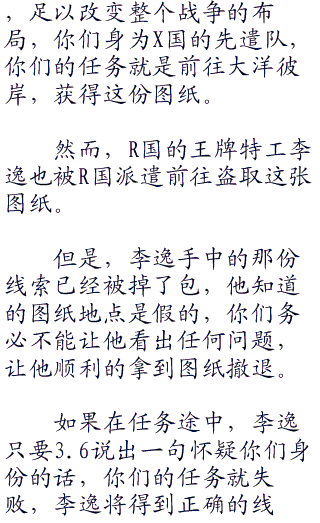 ，足以改变整个战争的布
局，你们身为X国的先遣队，
你们的任务就是前往大洋彼
岸，获得这份图纸。
然而，R国的王牌特工李
逸也被R国派遣前往盗取这张
图纸。
但是，李逸手中的那份
线索已经被掉了包，他知道
的图纸地点是假的，你们务
必不能让他看出任何问题，
让他顺利的拿到图纸撤退。
如果在任务途中，李逸
只要3.6说出一句怀疑你们身
份的话，你们的任务就失
败，李逸将得到正确的线